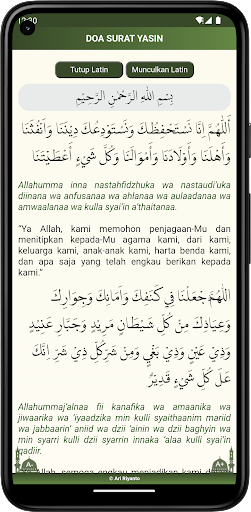 12:30
DOA SURAT YASIN
Tutup Latin
Munculkan Latin
بِسْمِ اللهِ الرَّحْمٰنِ الرَّحِيْمِ
اَللّٰهُمَّ اِنَّا نَسْتَحْفِظُكَ وَنَسْتَوْدِعُكَ دِيْنَنَا وَاَنْفُسَنَا
وَاَهْلَنَا وَاَوْلَادَنَا وَاَمْوَالَنَا وَكُلَّ شَيْءٍ اَعْطَيْتَنَا
Allahumma inna nastahfidzhuka wa nastaudi'uka
diinana wa anfusanaa wa ahlanaa wa aulaadanaa wa
amwaalanaa wa kulla syai'in a'thaitanaa.
"Ya Allah, kami memohon penjagaan-Mu dan
menitipkan kepada-Mu agama kami, dari kami,
keluarga kami, anak-anak kami, harta benda kami,
dan apa saja yang telah engkau berikan kepada
kami."
اَللّٰهُمَّ اجْعَلْنَا فِيْ كَنَفِكَ وَاَمَانِكَ وَجِوَارِكَ
وَعِيَاذِكَ مِنْ كُلِّ شَيْطَانٍ مَرِيْدٍ وَجَبَّارٍ عَنِيْدٍ
وَذِيْ عَيْنٍ وَذِيْ بَغْيٍ وَمِنْ شَرِّ كُلِّ ذِيْ شَرٍّ اِنَّكَ
عَلَى كُلِّ شَيْءٍ قَدِيْرٌ
Allahummaj'alnaa fii kanafika wa amaanika wa
jiwaarika wa 'iyaadzika min kulli syaithaanin mariid
wa jabbaarin' aniid wa dzii 'ainin wa dzii baghyin wa
min syarri kulli dzii syarrin innaka 'alaa kulli syai'in
qadiir.
A-
A+
© Ari Riyanto